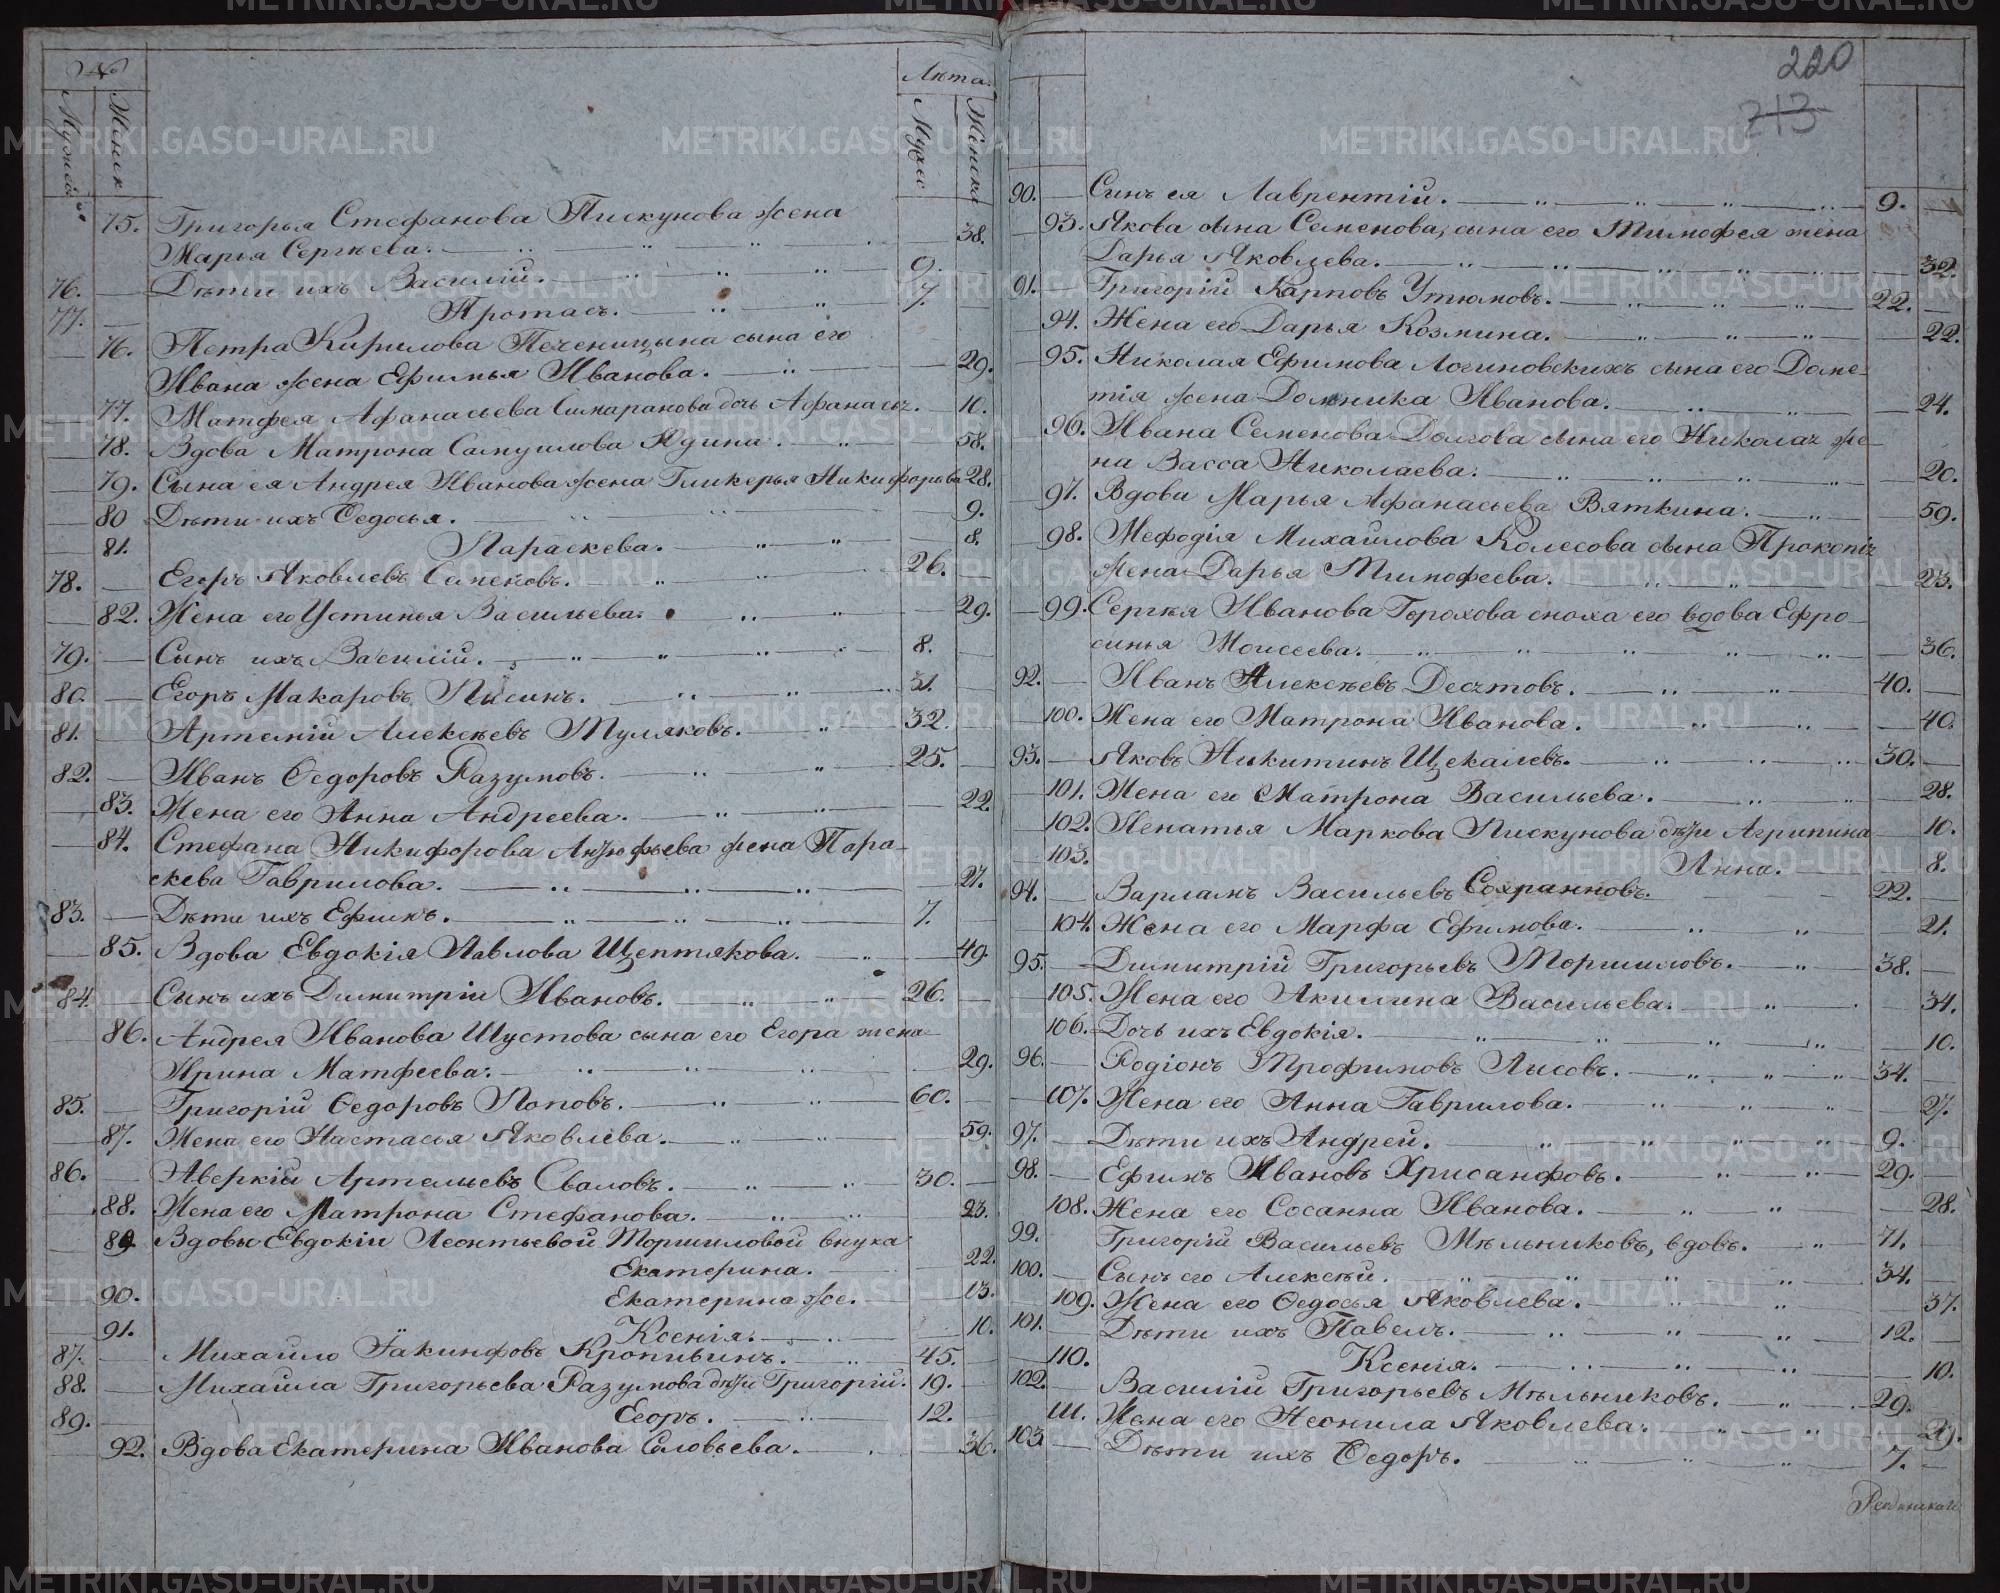 № Лѣта.
Мужеска Женск Мужес Женска
75. Григорья Стефанова Пискунова жена
Марья Сергѣева. 38.
76. Дѣти ихъ Василій. 9.
77. Протасъ. 7.
76. Петра Кирилова Печеницына сына его
Ивана жена Ефимья Иванова. 29.
77. Матфея Афанасьева Симаранова дочь Афанасья. 10.
78. Вдова Матрона Самуилова Юдина. 58.
79. Сына ея Андрея Иванова жена Гликерья Никифорова 28.
80 Дѣти ихъ Ѳедосья. 9.
81. Параскева. 8.
78. Егоръ Яковлевъ Семеновъ. 26.
82. Жена его Устинья Васильева. 29.
79. Сынъ ихъ Василій. 8.
80. Егоръ Макаровъ Писинъ. 31.
81. Артемій Алексѣевъ Туляковъ. 32.
82. Иванъ Ѳедоровъ Разумовъ. 25.
83. Жена его Анна Андреева. 22.
84. Стефана Никифорова Ануфрьева жена Пара-
скева Гаврилова. 27.
83. Дѣти ихъ Ефимъ. 7.
85. Вдова Евдокія Павлова Щептякова. 49.
84. Сынъ ихъ Димитрій Ивановъ. 26.
86. Андрея Иванова Шустова сына его Егора жена
Ирина Матфеева. 29.
85. Григорій Ѳедоровъ Поповъ. 60.
87. Жена его Настасья Яковлева. 59.
86. Аверкій Артемьевъ Сваловъ. 30.
88. Жена его Матрона Стефанова. 23.
89. Вдовы Евдокіи Леонтьевой Моршиловой внука
Екатерина. 22.
90. Екатерина же. 13.
91. Ксенія. 10.
87. Михайло Іакинфовъ Кропивинъ. 45.
88. Михайла Григорьева Разумова дѣти Григорій. 19.
89. Егоръ. 12.
92. Вдова Екатерина Иванова Соловьева. 36.
220
213
90. Сынъ ея Лаврентій. 9.
93. Якова сына Семенова, сына его Тимофея жена
Дарья Яковлева. 32.
91. Григорій Карповъ Утюмовъ. 22.
94. Жена его Дарья Козмина. 22.
95. Николая Ефимова Логиновскихъ сына его Доме-
тія жена Домника Иванова. 24.
96. Ивана Семенова Долгова сына его Николая же-
на Васса Николаева. 20.
97. Вдова Марья Афанасьева Вяткина. 59.
98. Мефодія Михайлова Колесова сына Прокопія
жена Дарья Тимофеева. 23.
99. Сергѣя Иванова Горохова сноха его вдова Ефро-
синья Моисеева. 36.
92. Иванъ Алексѣевъ Десятовъ. 40.
100. Жена его Матрона Иванова. 40.
93. Яковъ Никитинъ Щекалевъ. 30.
101. Жена его Матрона Васильева. 28.
102. Игнатья Маркова Пискунова дѣти Агрипина 10.
103. Анна. 8.
94. Варламъ Васильевъ Сохранновъ. 22.
104. Жена его Марфа Ефимова. 21.
95. Димитрій Григорьевъ Моршиловъ. 38.
105. Жена его Акилина Васильева. 34.
106. Дочь ихъ Евдокія. 10.
96. Родіонъ Трофимовъ Лысовъ. 34.
107. Жена его Анна Гаврилова. 27.
97. Дѣти ихъ Андрей. 9.
98. Ефимъ Ивановъ Хрисанфовъ. 29.
108. Жена его Сосанна Иванова. 28.
99. Григорій Васильевъ Мѣльниковъ, вдовъ. 71.
100. Сынъ его Алексѣй. 34.
109. Жена его Ѳедосья Яковлева. 37.
101. Дѣти ихъ Павелъ. 12.
110. Ксенія. 10.
102. Василій Григорьевъ Мѣльниковъ. 29.
111. Жена его Неонила Яковлева. 29.
103. Дѣти ихъ Ѳедоръ. 7.
METRIKI.GASO-URAL.RU